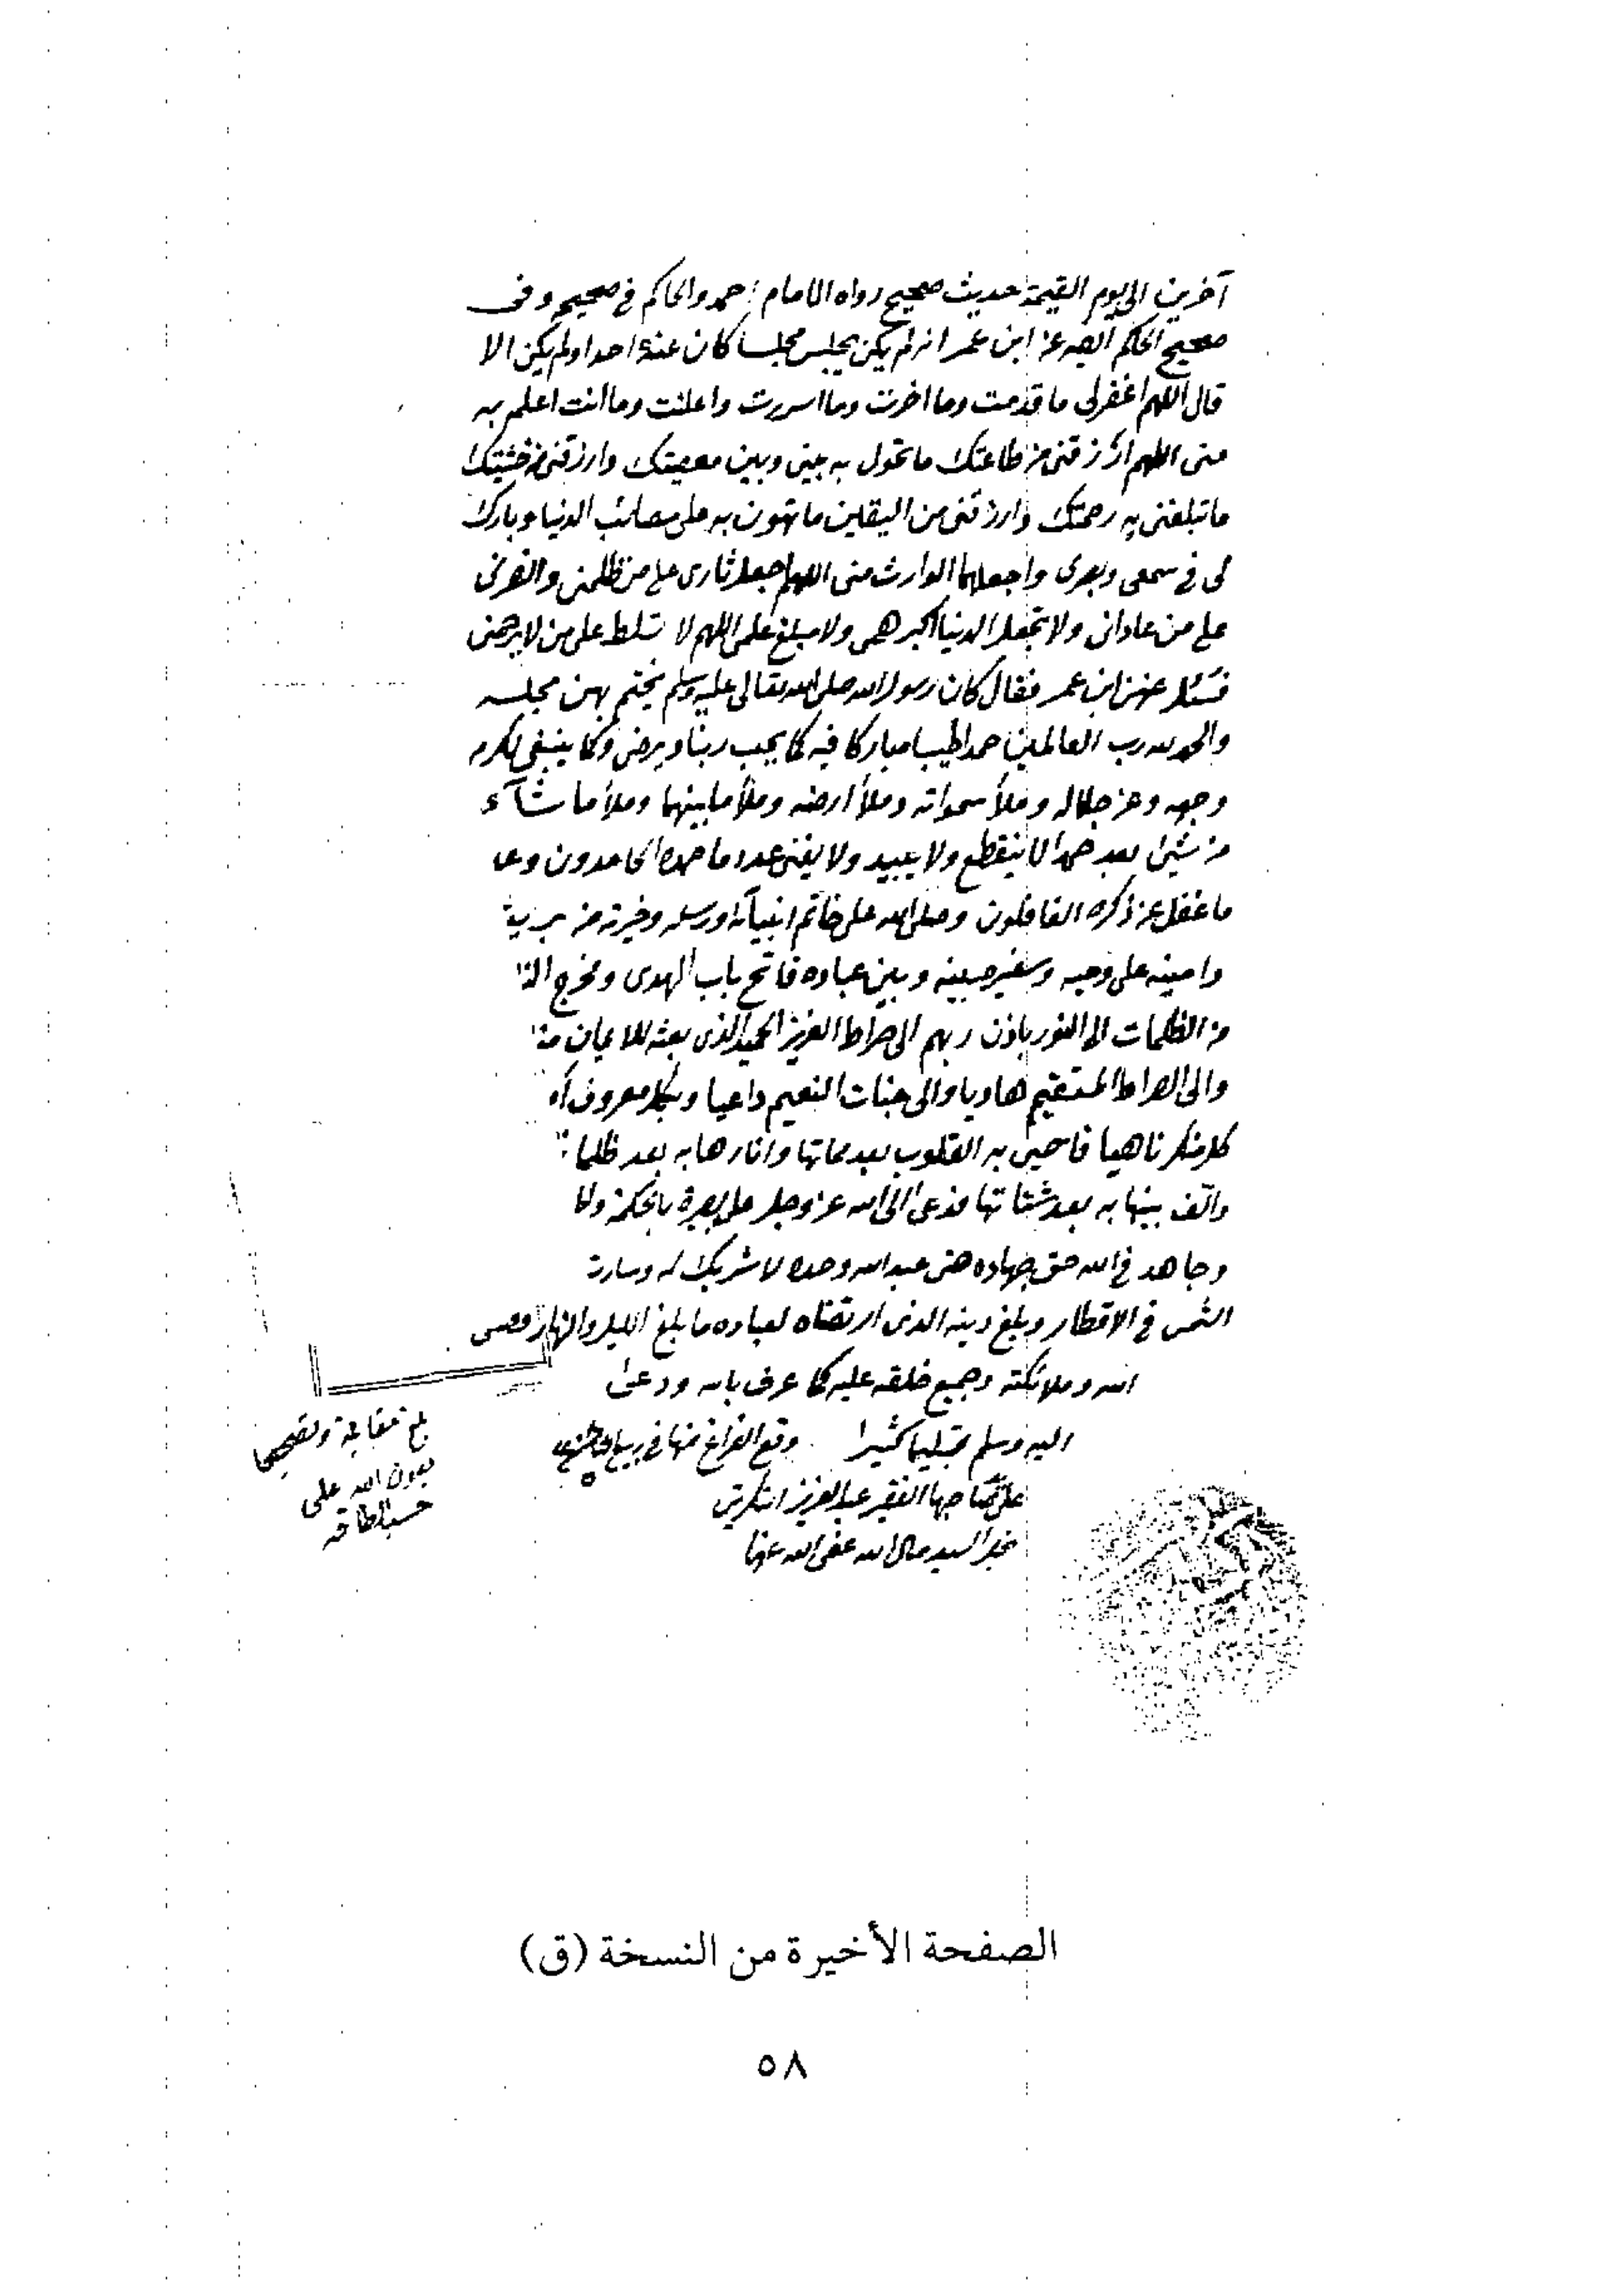 آخرين الى يوم القيمة حديث صحيح رواه الامام احمد والحاكم في صحيحه وفى
صحيح الحاكم ايضا عن ابن عمر انه لم يكن يجلس مجلسا كان عنده احد او لم يكن الا
قال اللهم اغفرلى ما قدمت وما اخرت وما اسررت وما اعلنت وما انت اعلم به
منى اللهم ارزقنى من طاعتك ما تحول به بينى وبين معصيتك وارزقنى من خشيتك
ما تبلغنى به رحمتك وارزقنى من اليقين ما تهون به على مصائب الدنيا وبارك
لى فى سمعى وبصرى واجعلهما الوارث منى اللهم اجعل ثارى على من ظلمنى وانصرنى
على من عادانى ولا تجعل الدنيا اكبر همى ولا مبلغ علمى اللهم لا تسلط على من لا يرحمنى
فسئل عنهن ابن عمر فقال كان رسول الله صلى الله تعالى عليه وسلم يختم بهن مجلسه
والحمد لله رب العالمين حمدا طيبا مباركا فيه كما يحب ربنا ويرضى وكما ينبغى لكرم
وجهه وعز جلاله وملأ سمواته وملأ ارضه وملأ ما بينهما وملأ ما شآء
من شيئ بعد حمدا لا ينقطع ولا يبيد ولا يفنى عدد ما حمده الحامدون وعد
ما غفل عن ذكره الغافلون وصلى الله على خاتم انبيآئه ورسله وخيرته من بريته
وامينه على وحيه وسفيره بينه وبين عباده فاتح باب الهدى ومخرج النا
من الظلمات الى النور باذن ربهم الى صراط العزيز الحميد الذى بعثه للايمان منا
والى الصراط المستقيم هاديا والى جنات النعيم داعيا وبكل معروف آم
كل منكر ناهيا فاحيى به القلوب بعد مماتها وانارها به بعد ظلما
والّف بينها به بعد شتاتها فدعى الى الله عز وجل على بصيرة بالحكمة والم
وجاهد فى الله حق جهاده حتى عبد الله وحده لا شريك له وسارت
الشمس فى الاقطار وبلغ دينه الذى ارتضاه لعباده ما بلغ الليل والنهار وصلى
الله وملائكته وجميع خلقه عليه كما عرف بالله ودعى
اليه وسلم تسليما كثيرا وقع الفراغ منها فى ربيع
على يد كتابها الفقير عبد العزيز التكريتى
نجل السيد مال الله عفى الله عنهما
بلغ مقابلة وتصحيحا
بعون الله على
حسب الطاقه
الصفحة الأخيرة من النسخة (ق)
٥٨